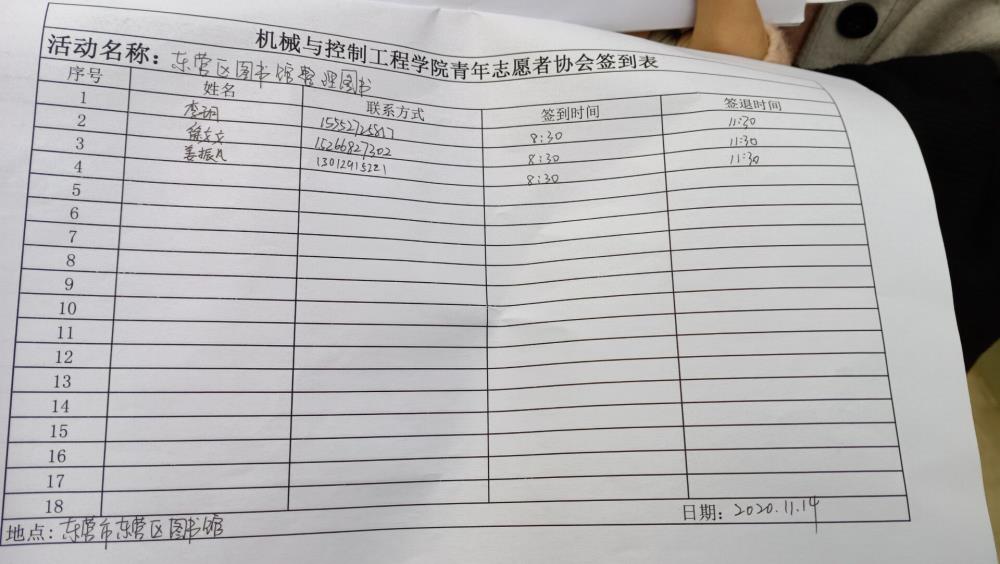 机械与控制工程学院青年志愿者协会签到表
活动名称：东营区图书馆整理图书
序号 姓名 联系方式 签到时间 签退时间
1 李珂 15552725817 8:30 11:30
2 15266827302 8:30 11:30
3 姜振凡 13012915221 8:30 11:30
4
5
6
7
8
9
10
11
12
13
14
15
16
17
18
地点：东营市东营区图书馆 日期：2020.11.14